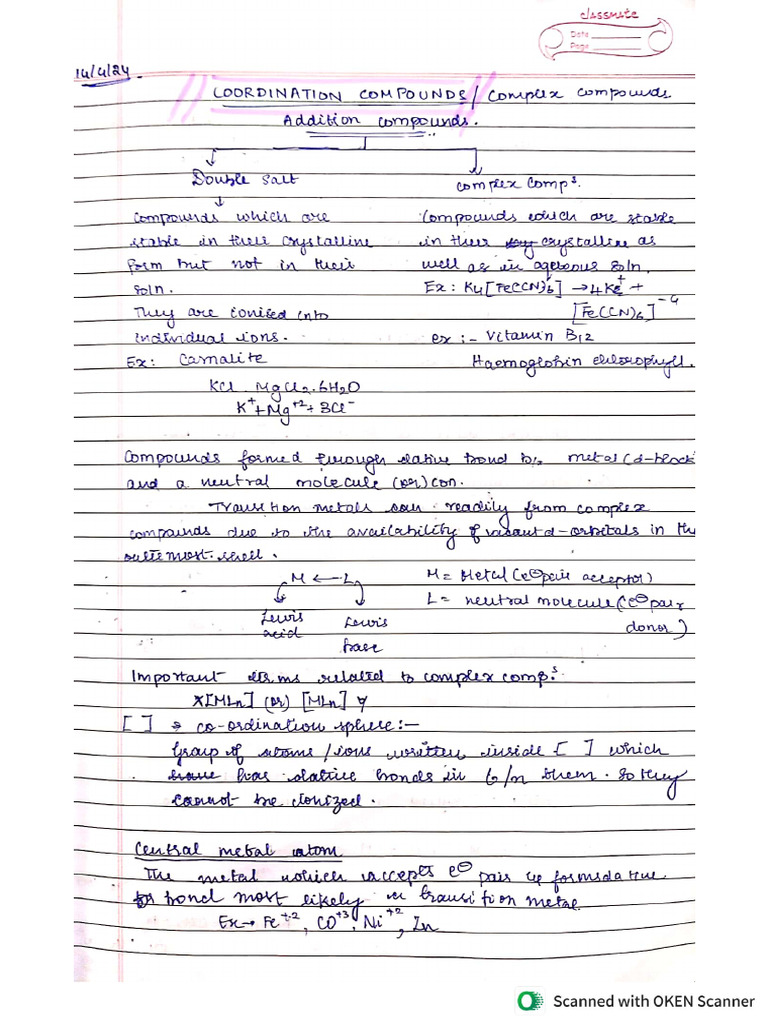 classmate
Date
Page
14/4/24
COORDINATION COMPOUNDS / Complex compounds
Addition compounds.
Double salt
complex comp^s.
Compounds which are
stable in their crystalline
form but not in their
soln.
They are ionised into
individual ions.
Ex: Carnalite
KCl MgCl2.6H2O
K^+ + Mg^+2 + 3Cl^-
Compounds which are stable
in their crystalline as
well as in aqeous soln.
Ex: K4[Fe(CN)6] → 4K^+ +
[Fe(CN)6]^-4
ex :- Vitamin B12
Haemoglobin chlorophyll.
Compounds formed through dative bond b/n metal (d-block
and a neutral molecule (or) ion.
Transition metals can readily from complex
compounds due to the availability of vacant d-orbitals in the
outermost shell.
M ← L
Lewis acid
Lewis base
M = Metal (e⊖ pair acceptor)
L = neutral molecule (e⊖ pair
donor)
Important terms related to complex comp^s.
X[MLn] (or) [MLn] Y
[ ] → co-ordination sphere :-
Group of atoms / ions written inside [ ] which
has dative bonds in b/n them. So they
cannot be ionized.
Central metal atom
The metal which accepts e⊖ pair
bond most likely transition metal
Ex → Fe^+2, CO^+3, Ni^+2, Zn
Scanned with OKEN Scanner